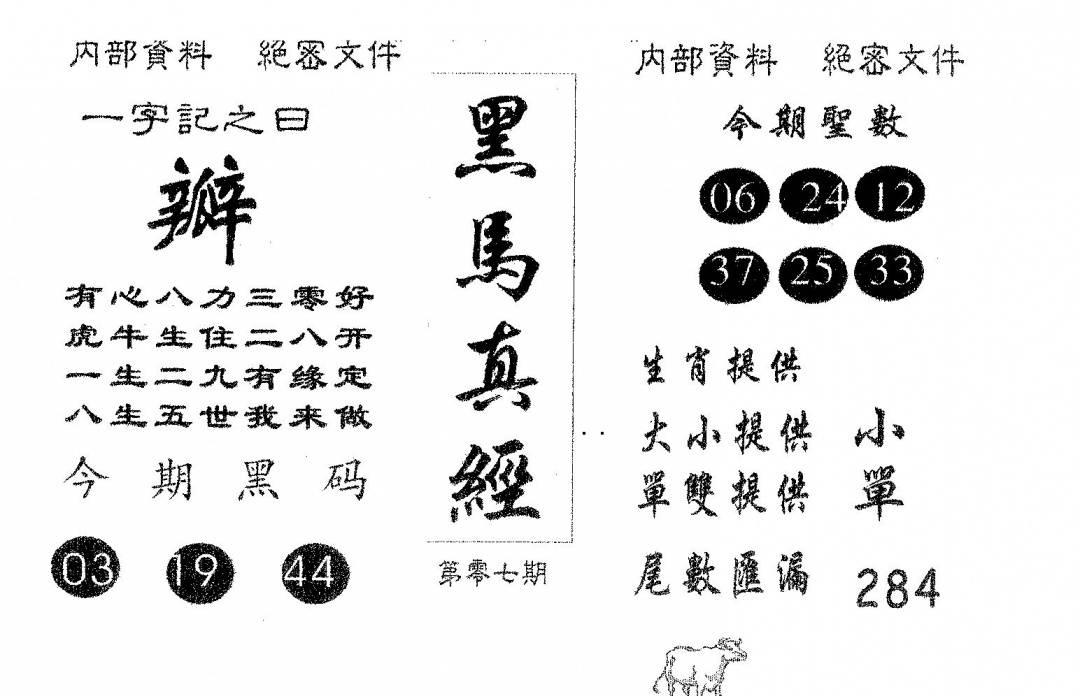 内部資料 絕密文件
一字記之曰
瓣
有心八力三零好
虎牛生住二八开
一生二九有緣定
八生五世我来做
今期黑码
03 19 44
黑馬真經
第零七期
内部資料 絕密文件
今期聖數
06 24 12
37 25 33
生肖提供
大小提供 小
單雙提供 單
尾數匯漏 284